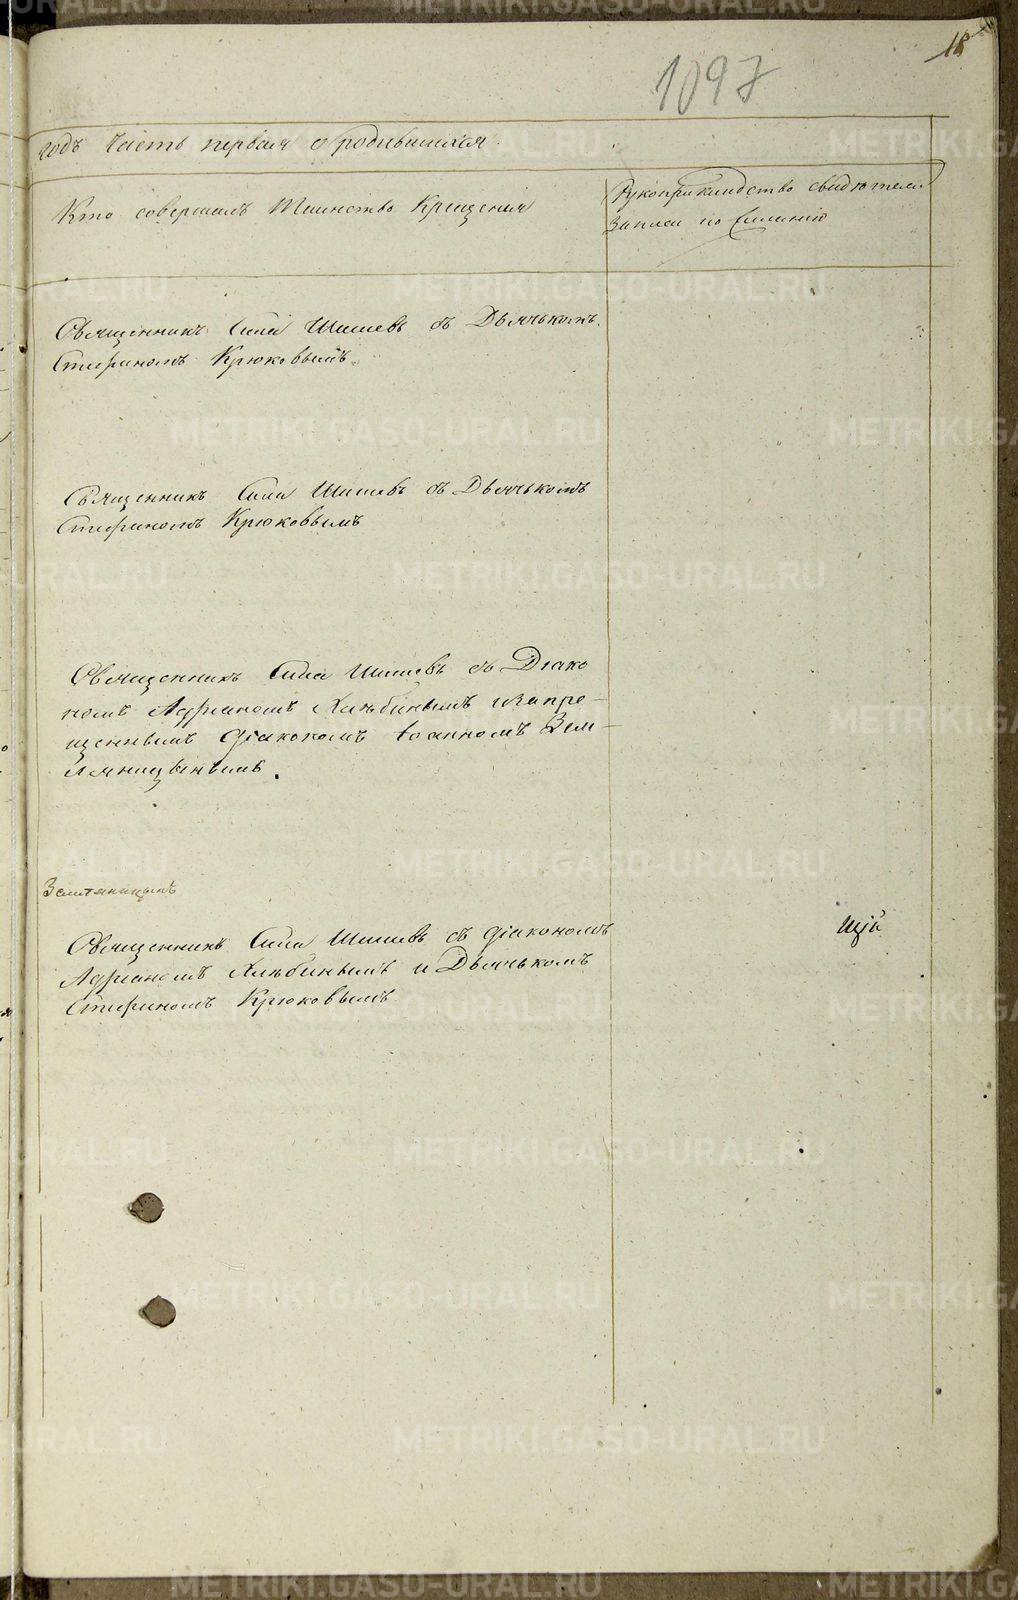 18
1097
годъ часть первая о родившихся.
Кто совершалъ Таинство Крещения
Рукоприкладство свидѣтелей
записи по желанію
Священникъ Сила Шишевъ съ Дьячькомъ
Стефаномъ Крюковымъ.
Священникъ Сила Шишевъ съ Дьячькомъ
Стефаномъ Крюковымъ
Священникъ Сила Шишевъ съ Діако
номъ Адрианомъ Хлѣбинымъ и запре-
щеннымъ діакономъ Іоанномъ Зем-
ляницынымъ.
Земляницынъ
Священникъ Сила Шишевъ съ діакономъ
Адрианомъ Хлѣбинымъ и Дьячькомъ
Стефаномъ Крюковымъ
щій
METRIKI.GASO-URAL.RU